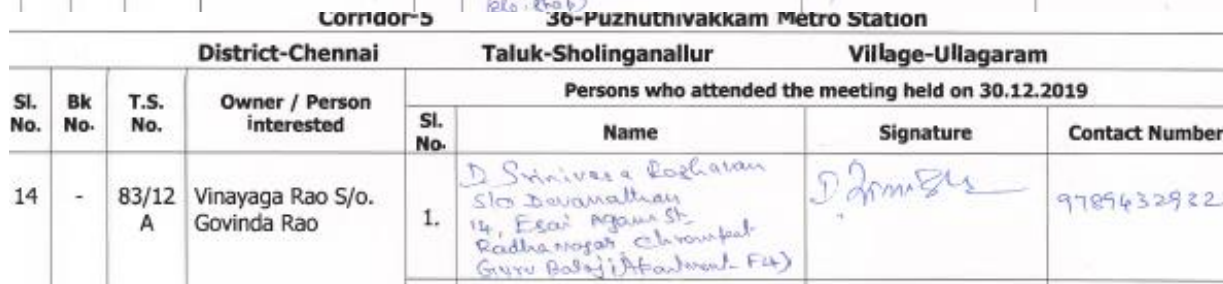 Corridor-5 36-Puzhuthivakkam Metro Station
District-Chennai Taluk-Sholinganallur Village-Ullagaram
Sl. No. Bk No. T.S. No. Owner / Person interested Persons who attended the meeting held on 30.12.2019
Sl. No. Name Signature Contact Number
14 - 83/12 A Vinayaga Rao S/o. Govinda Rao
1. D Srinivasa Raghavan
S/o Devanathan
14, Esai Agam St
Radha nagar Chrompet
Guru Balaji (Apartment F4)
9789432922